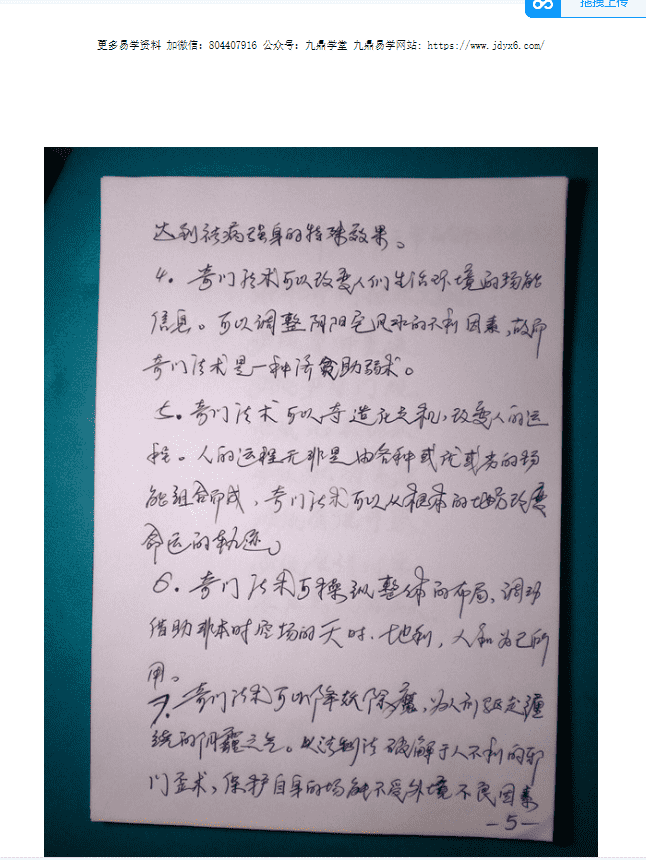 拖拽上传
更多易学资料 加微信：804407916 公众号：九鼎学堂 九鼎易学网站: https://www.jdyx6.com/
达到祛病强身的特殊效果。
4. 奇门法术可以改变人们生活环境的场能
信息。可以调整阴阳宅风水的不利因素,故而
奇门法术是一种济贫助弱术。
五。奇门法术可以夺造化之机,改变人的运
程。人的运程无非是由各种或优或劣的场
能组合而成,奇门法术可以从根本的地方改变
命运的轨迹。
6. 奇门法术可操纵整体的布局,调动
借助非本时空场的天时.地利,人和为己所
用。
7. 奇门法术可以降妖除魔,为人剖跃走缠
绕的阴霾之气。以法制法破解于人不利的邪
门歪术,保护自身的场能不受外境不良因素
—5—